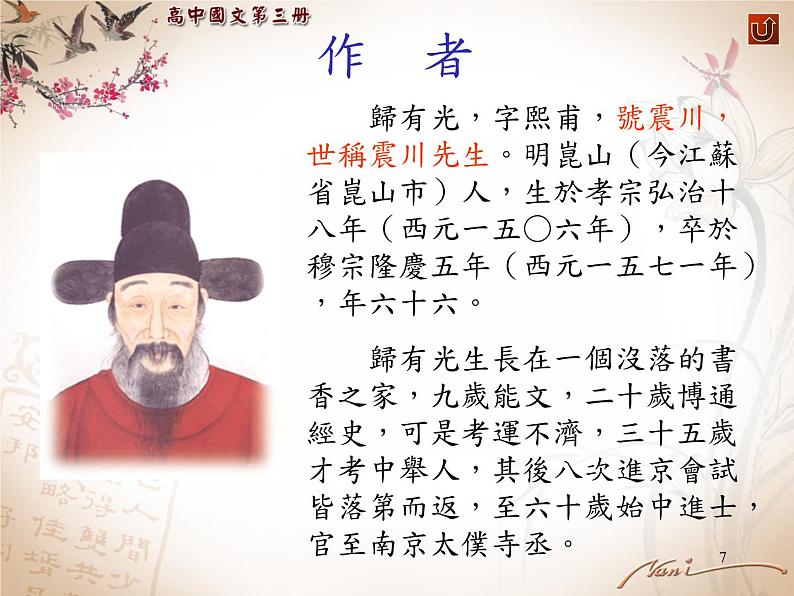 高中國文第三册
作 者
歸有光，字熙甫，號震川，
世稱震川先生。明崑山（今江蘇
省崑山市）人，生於孝宗弘治十
八年（西元一五〇六年），卒於
穆宗隆慶五年（西元一五七一年）
，年六十六。
歸有光生長在一個沒落的書
香之家，九歲能文，二十歲博通
經史，可是考運不濟，三十五歲
才考中舉人，其後八次進京會試
皆落第而返，至六十歲始中進士，
官至南京太僕寺丞。
7
Nani